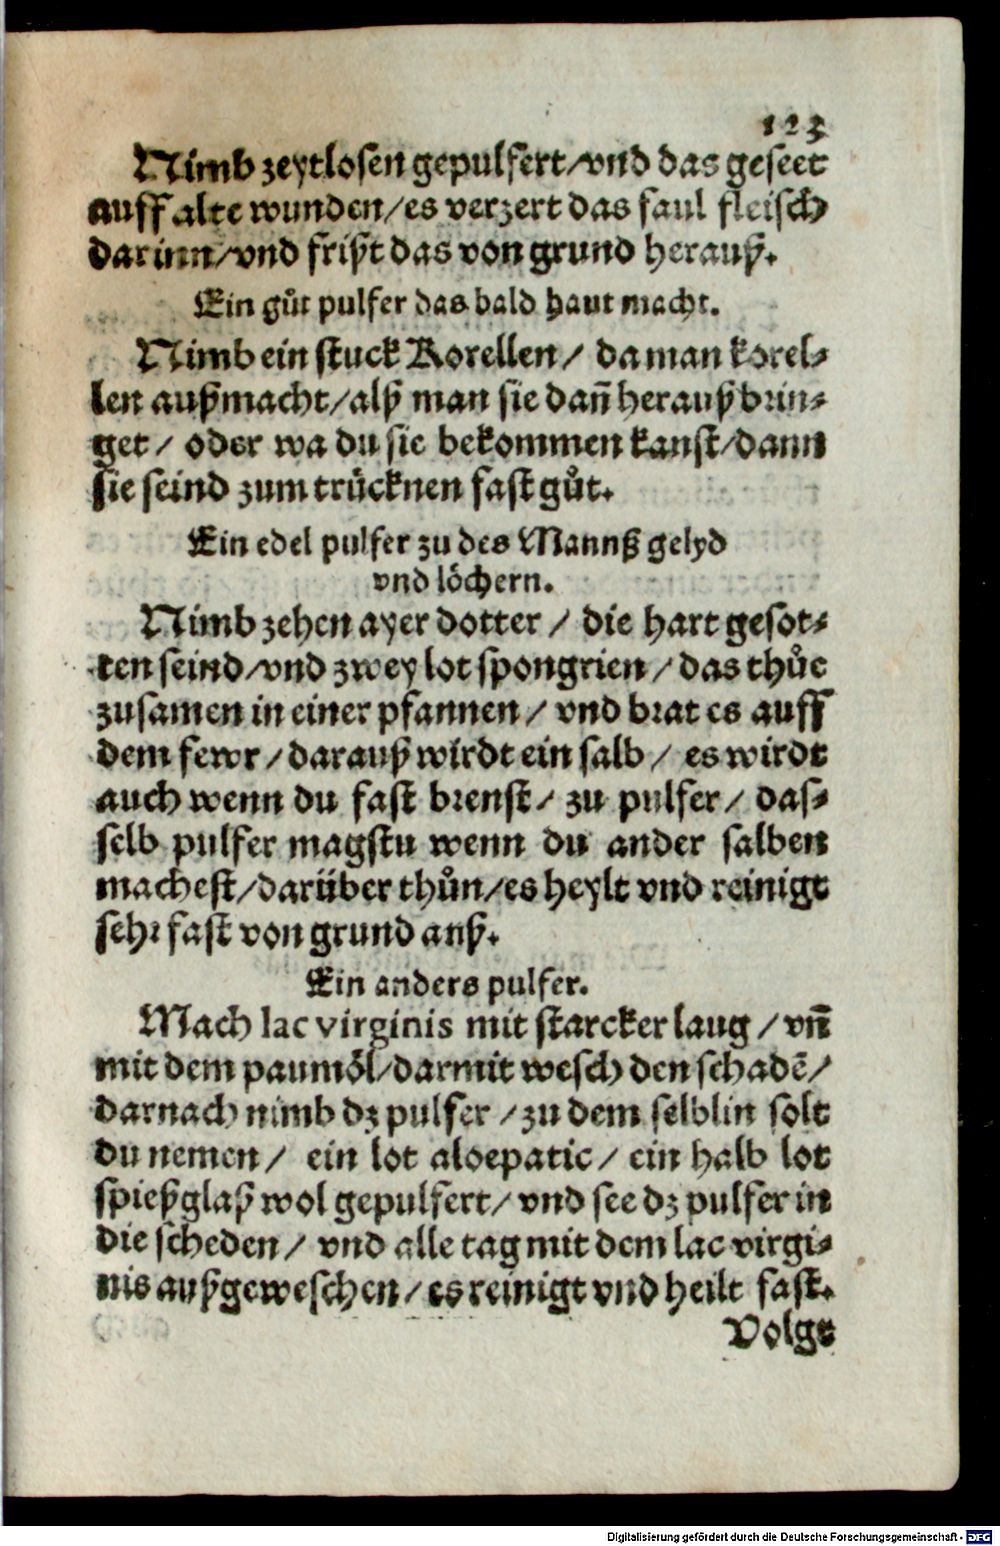 123
Nimb zeytlosen gepulfert/vnd das geseet
auff alte wunden/es verzert das faul fleisch
darinn/vnd frißt das von grund herauß.
Ein gůt pulfer das bald haut macht.
Nimb ein stuck Korellen/ da man korel⸗
len außmacht/alß man sie dañ herauß brin⸗
get/ oder wa du sie bekommen kanst/dann
sie seind zum trücknen fast gůt.
Ein edel pulfer zu des Mannß gelyd
vnd löchern.
Nimb zehen ayer dotter/ die hart gesot⸗
ten seind/vnd zwey lot spongrien/das thůe
zusamen in einer pfannen/ vnd brat es auff
dem fewr/darauß wirdt ein salb/ es wirdt
auch wenn du fast brenst/ zu pulfer/ das⸗
selb pulfer magstu wenn du ander salben
machest/darüber thůn/es heylt vnd reinigt
sehr fast von grund auß.
Ein anders pulfer.
Mach lac virginis mit starcker laug/vñ
mit dem paumöl/darmit wesch den schadē/
darnach nimb dz pulfer/zu dem selblin solt
du nemen/ ein lot aloepatic/ ein halb lot
spießglaß wol gepulfert/ vnd see dz pulfer in
die scheden/ vnd alle tag mit dem lac virgi⸗
nis außgeweschen/es reinigt vnd heilt fast.
Volgt
Digitalisierung gefördert durch die Deutsche Forschungsgemeinschaft - DFG